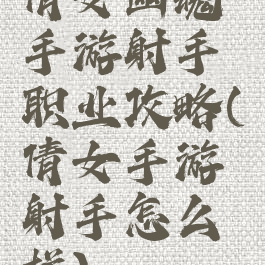 倩女幽魂
手游射手
职业攻略(
倩女手游
射手怎么
样)